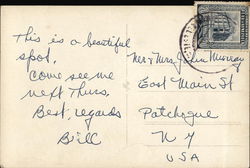 This is a beautiful
spot.
Come see me
next Thurs.
Best regards
Bill
Mr & Mrs John Murray
East Main St
Patchogue
N Y
USA